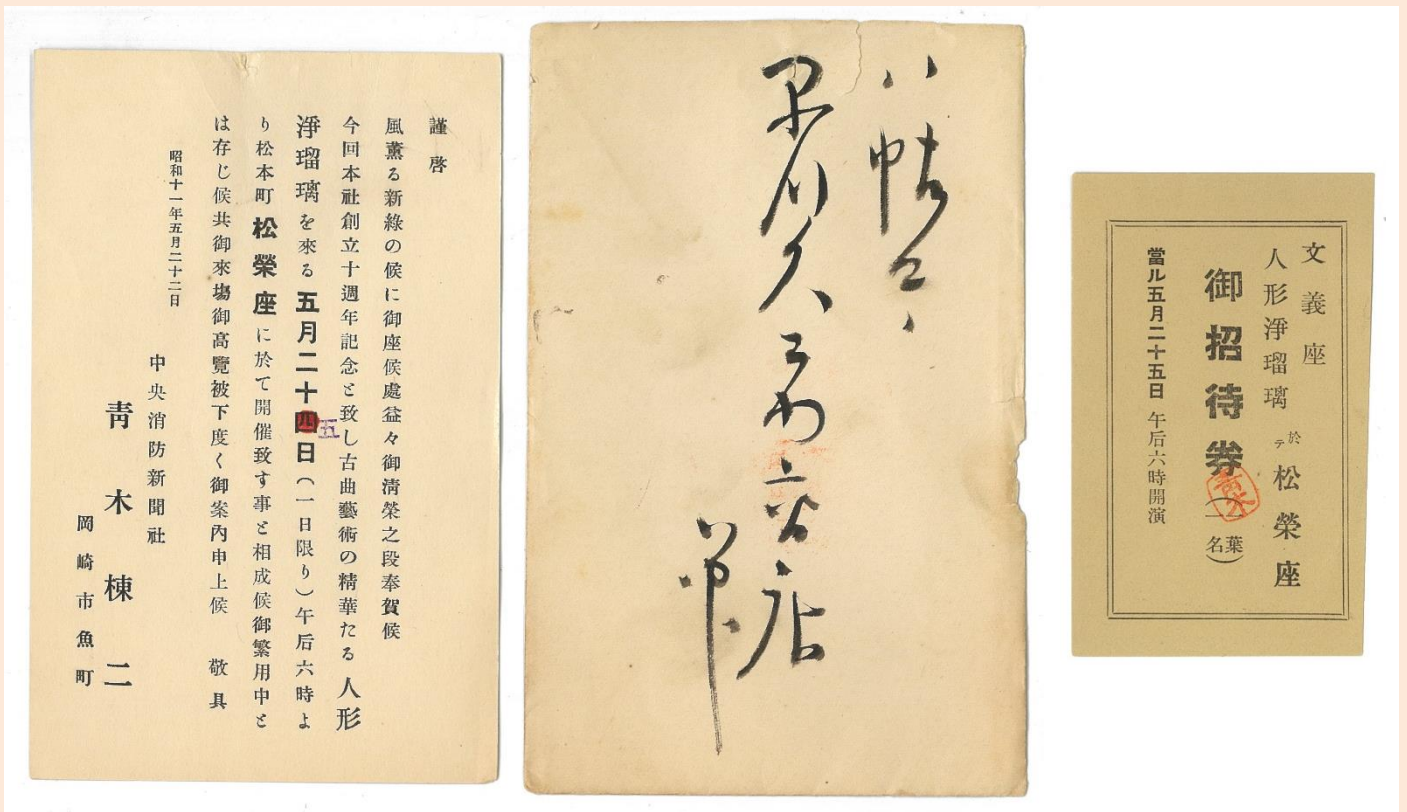 謹啓
風薫る新綠の候に御座候處益々御清榮之段奉賀候
今回本社創立十週年記念と致し古曲藝術の精華たる人形
淨瑠璃を來る五月二十四日(一日限り)午后六時よ
五
り松本町松榮座に於て開催致す事と相成候御繁用中と
は存じ候共御來塲御高覽被下度く御案內申上候 敬具
昭和十一年五月二十二日
中央消防新聞社
靑木棟二
岡崎市魚町
八帖
早川久
店
文義座
人形淨瑠璃 於テ 松榮座
御招待券(一葉一名)
當ル五月二十五日 午后六時開演